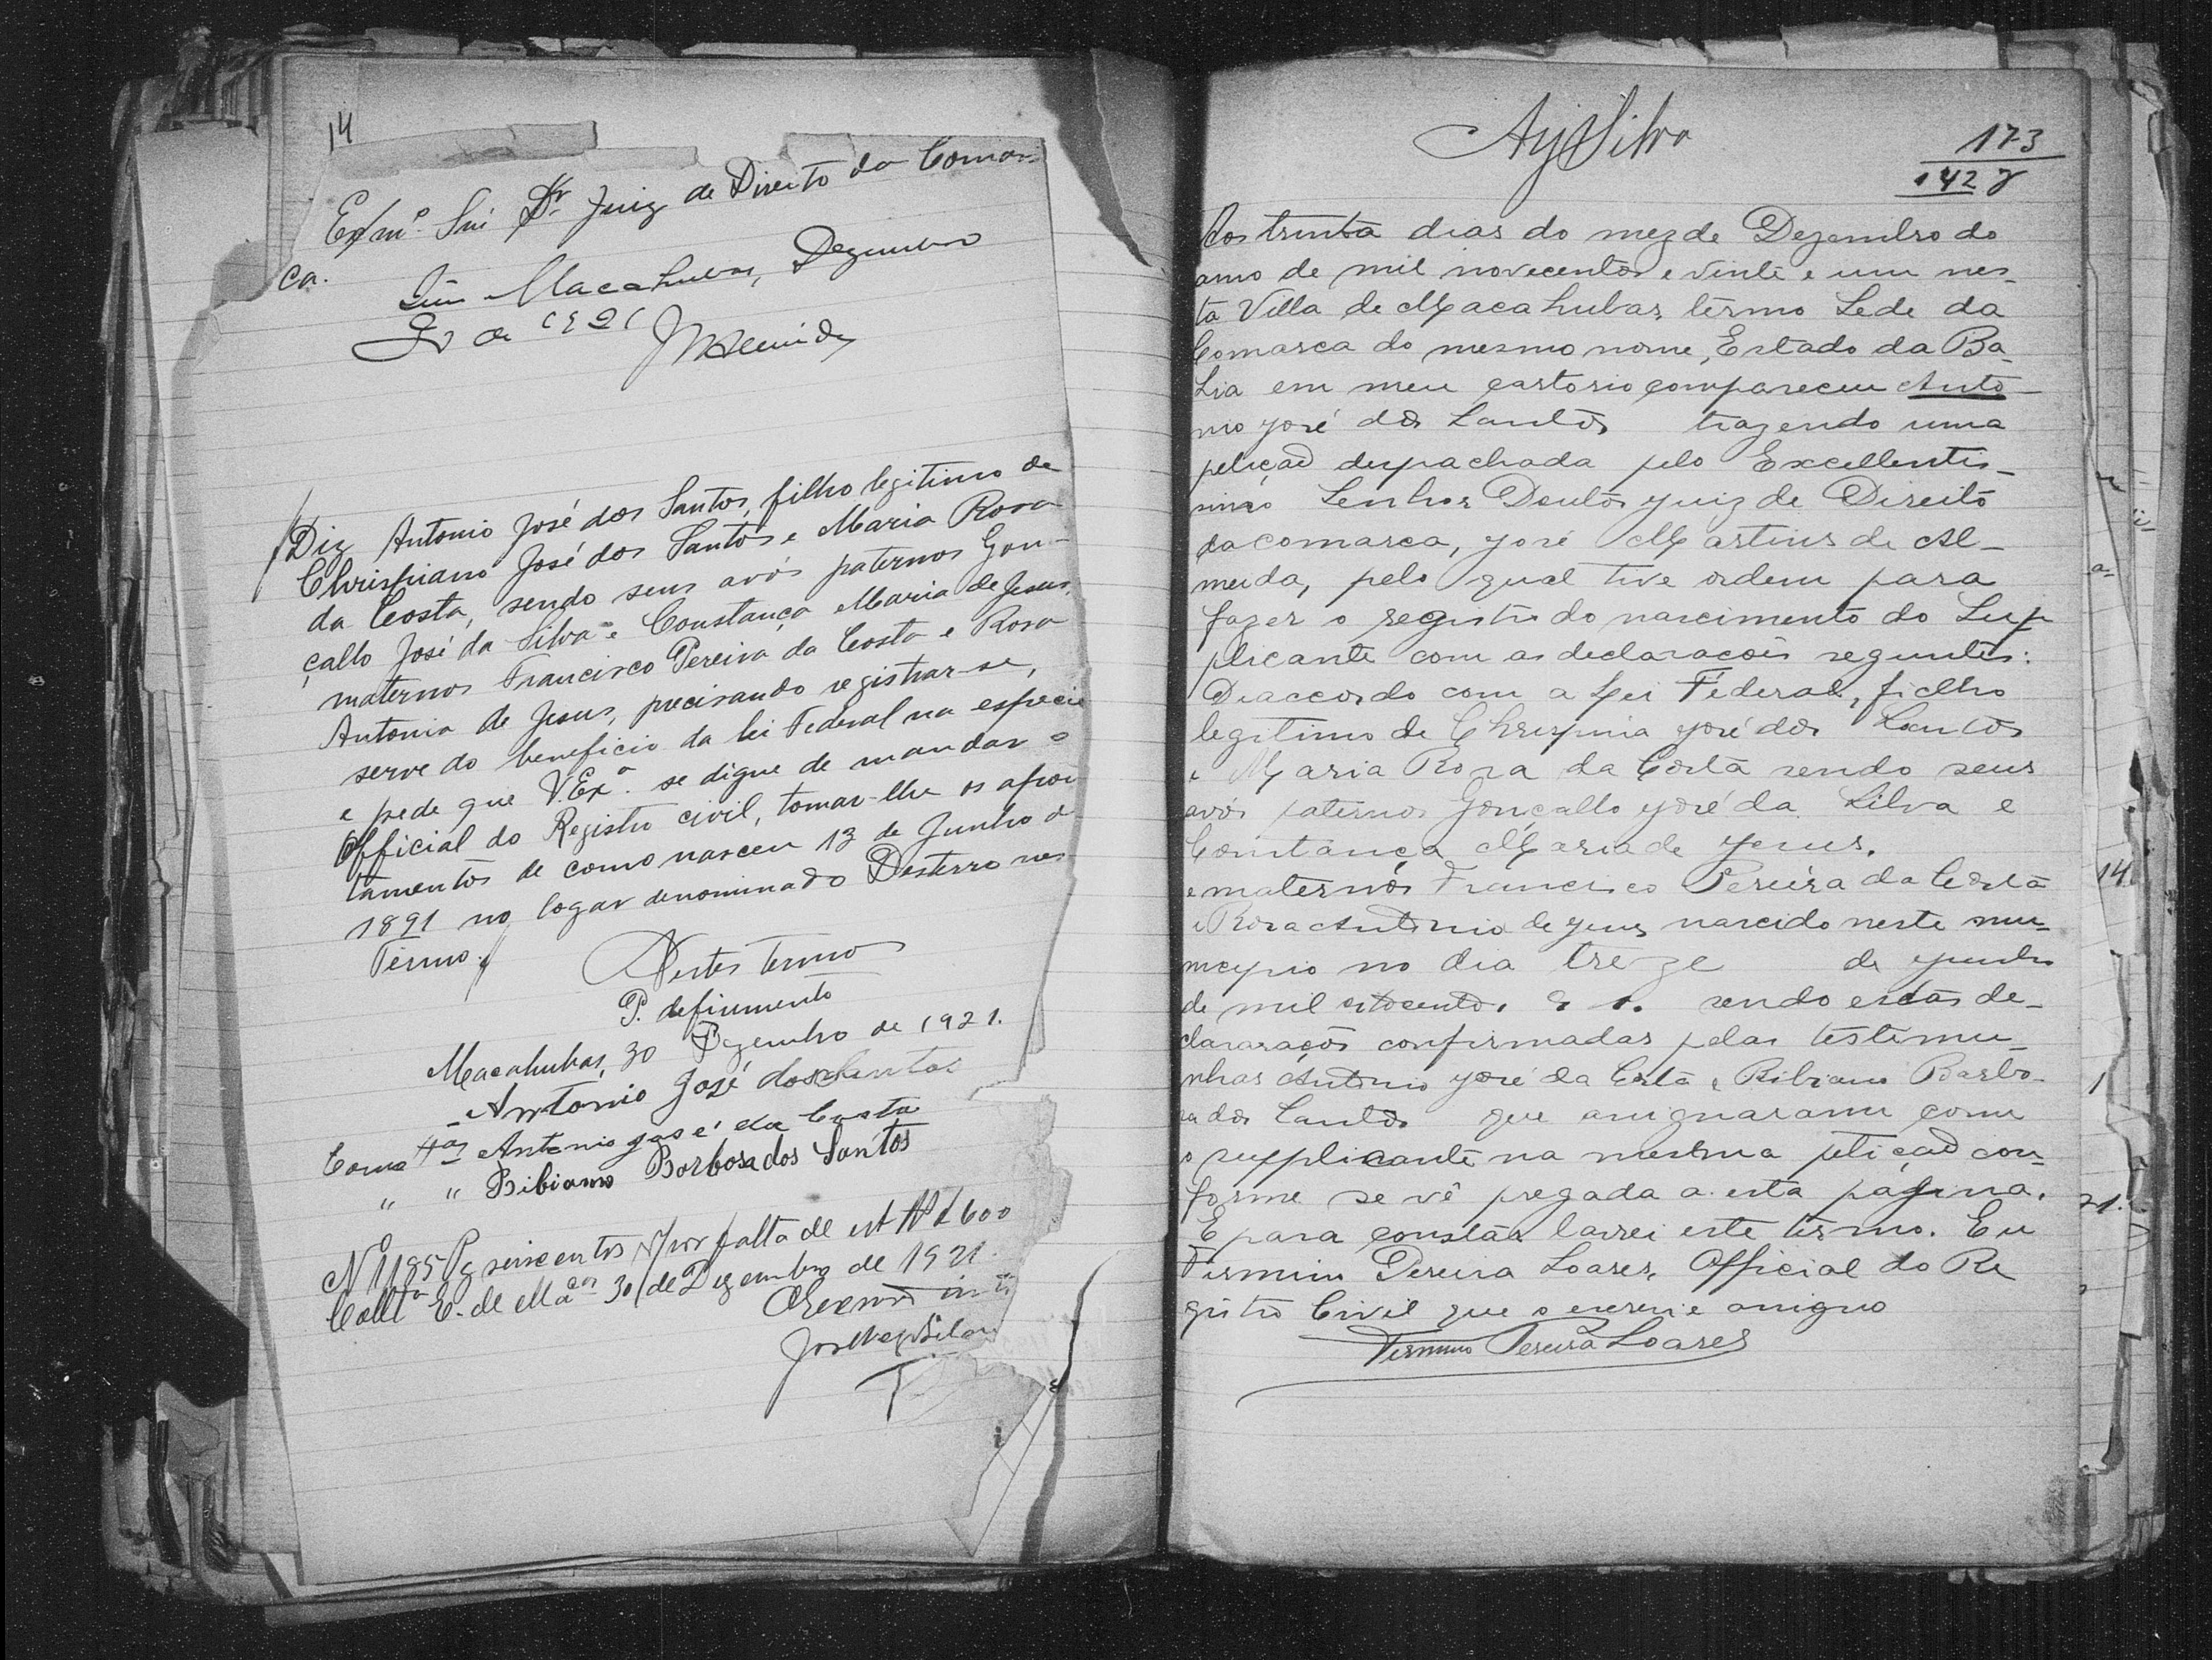 14
Exmº. Snr Dr. Juiz de Direito da Comar-
ca.
Sim Macahubas, Dezembro
30 de 1921
JMAlmeida
Diz Antonio José dos Santos, filho legitimo de
Chrispiano José dos Santos e Maria Rosa
da Costa, sendo seus avós paternos Gon-
çallo José da Silva e Constança Maria de Jesus,
maternos Francisco Pereira da Costa e Rosa
Antonia de Jesus, precisando registrar-se,
serve do beneficio da lei Federal na especie
e pede que V. Exª. se digne de mandar o
Official do Registro civil, tomar-lhe os apon
tamentos de como nasceu 13 de Junho d
1891 no logar denominado Desterro nes
Termo.
Nestes termo
P. defirimento
Macahubas, 30 Dezembro de 1921.
Antonio José dos Santos
Como ttas Antonio José da Costa
" " Bibiano Barbosa dos Santos
Nº 1185 Pg seiscentos por falta de est 600
Collª E. de Macas 30 de Dezembro de 1921
173
142
Aos trinta dias do mez de Dezembro do
anno de mil novecentos e vinte e um nes-
ta Villa de Macahubas, termo Sede da
Comarca do mesmo nome, Estado da Ba-
hia em meu cartorio compareceu Anto-
nio José dos Santos trazendo uma
petição despachada pelo Excellentis-
simo Senhor Doutor Juiz de Direito
da comarca, José Martins de Al-
meida, pelo qual tive ordem para
fazer o registro do nascimento do Sup
plicante com as declarações seguntes:
De accordo com a Lei Federal, filho
legitimo de José dos Santos
e Maria Rosa da Costa sendo seus
avós paternos Gonçallo José da Silva e
Constança Maria de Jesus.
e maternos Francisco Pereira da Costa
e Rosa Antonia de Jesus nascido neste mu-
nicipio no dia treze de Junho
de mil oitocentos 9 1. sendo estas de-
clarações confirmadas pelas testemu-
nhas Antonio José da Costa e Bibiano Barbo-
sa dos Santos que assignaram com
o supplicante na mesma petição con-
forme se vê pregada a esta pagina.
E para constar lavrei este termo. Eu
Firmino Pereira Soares, Official do Re
gistro Civil que o escrevi e assigno
Firmino Pereira Soares
14